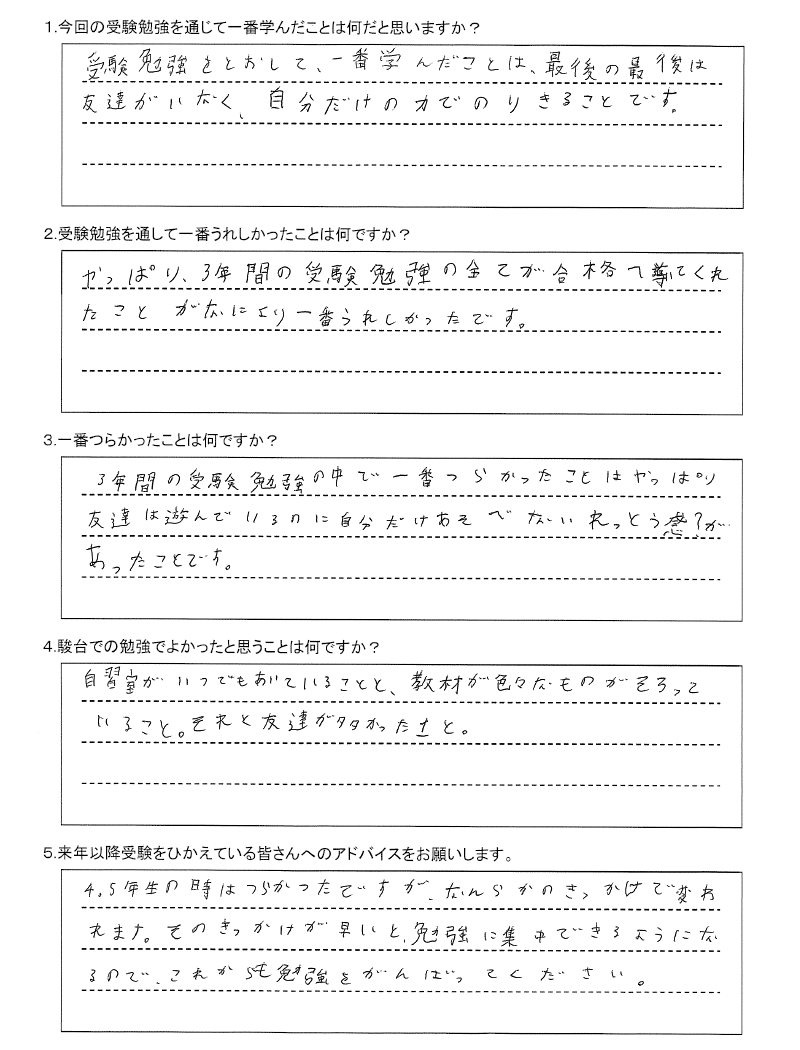 1.今回の受験勉強を通じて一番学んだことは何だと思いますか？
受験勉強をとおして、一番学んだことは、最後の最後は
友達がいなく、自分だけの力でのりきることです。
2.受験勉強を通して一番うれしかったことは何ですか？
やっぱり、3年間の受験勉強の全てが合格へ導てくれ
たことがなにより一番うれしかったです。
3.一番つらかったことは何ですか？
3年間の受験勉強の中で一番つらかったことはやっぱり
友達は遊んでいるのに自分だけあそべないれっとう感？が
あったことです。
4.駿台での勉強でよかったと思うことは何ですか？
自習室がいつでもあいていることと、教材が色々なものがそろって
いること。それと友達が多かったこと。
5.来年以降受験をひかえている皆さんへのアドバイスをお願いします。
4,5年生の時はつらかったですが、なんらかのきっかけで変わ
れます。そのきっかけが早いと、勉強に集中できるようにな
るので、これからも勉強をがんばってください。